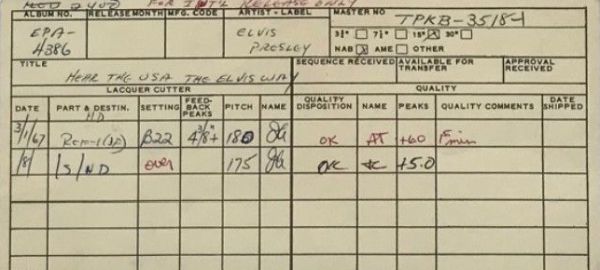 FOR INT'L RELEASE ONLY
ALBUM NO. RELEASE MONTH MFG. CODE ARTIST - LABEL MASTER NO
EPA-4386 ELVIS PRESLEY TPKB-3518-1
3¾" 7½" 15" X 30"
NAB X AME OTHER
TITLE SEQUENCE RECEIVED AVAILABLE FOR TRANSFER APPROVAL RECEIVED
HEAR THE USA THE ELVIS WAY
LACQUER CUTTER QUALITY
DATE PART & DESTIN. SETTING FEED-BACK PEAKS PITCH NAME QUALITY DISPOSITION NAME PEAKS QUALITY COMMENTS DATE SHIPPED
HD
3/1/67 B22 180 OK AT +60
1/8/ 1S/ND over 175 OK +5.0